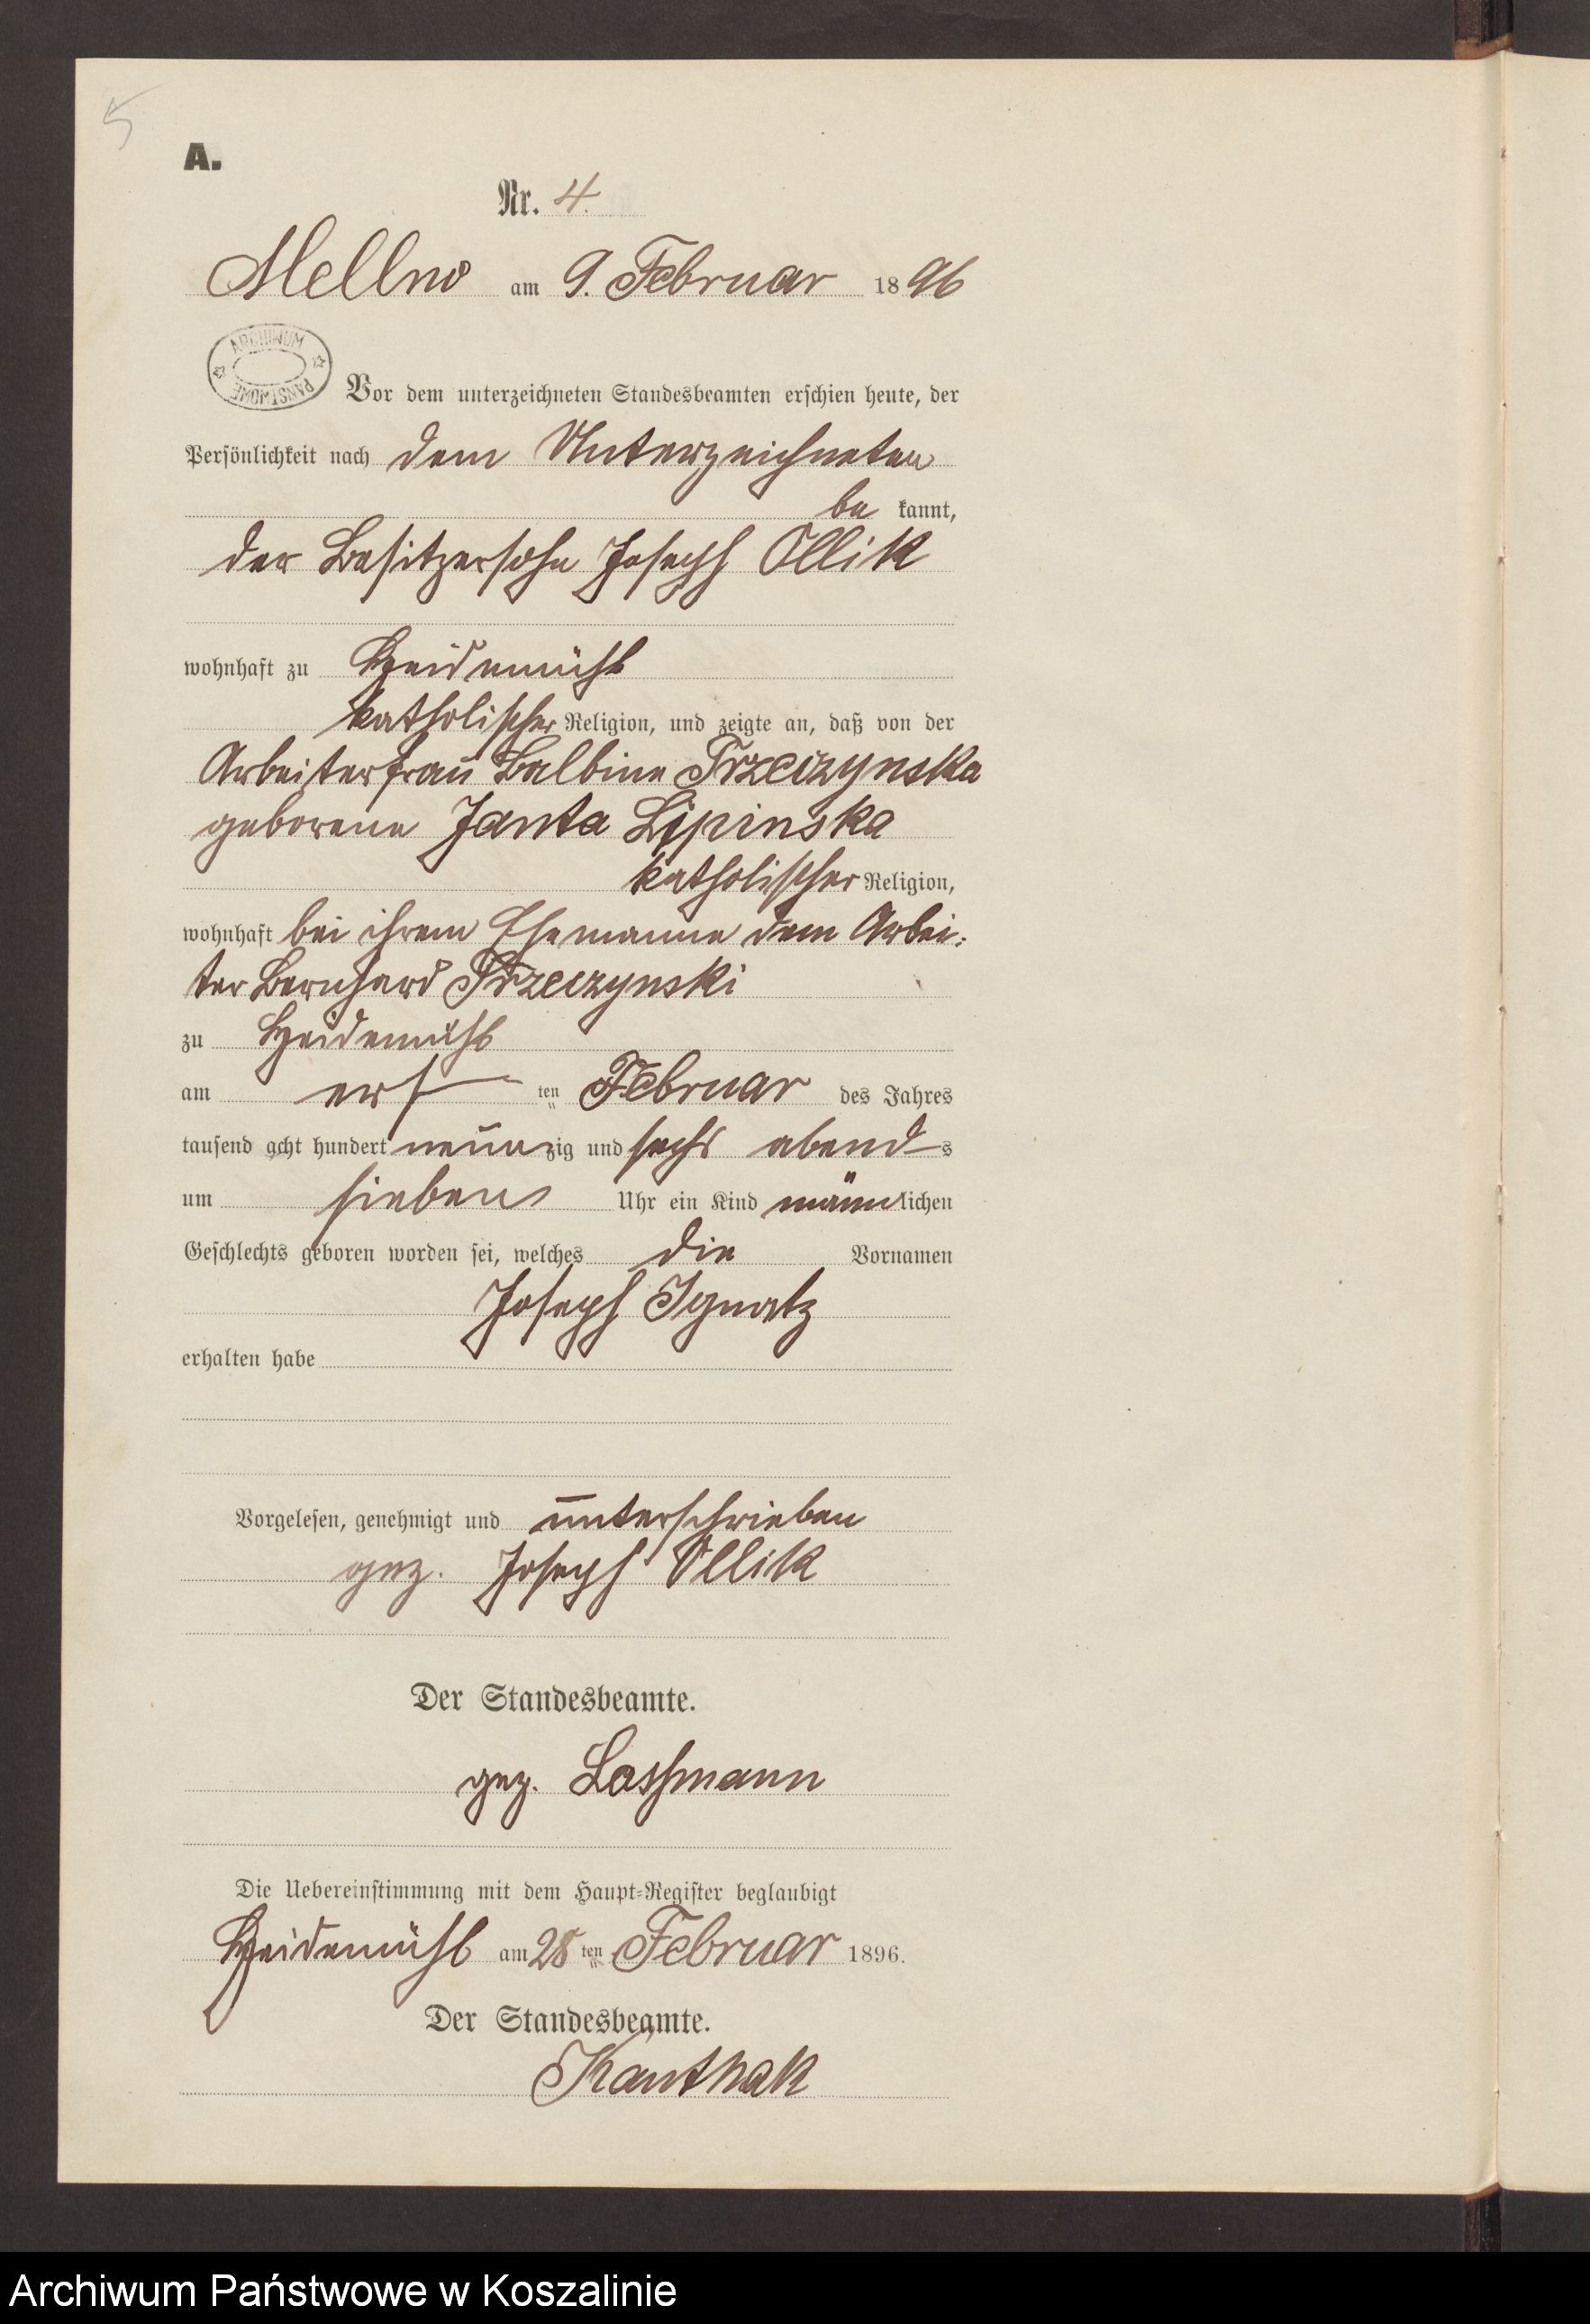 5
A.
Nr. 4.
Mellno am 9. Februar 1896
ARCHIWUM PAŃSTWOWE
Vor dem unterzeichneten Standesbeamten erschien heute, der
Persönlichkeit nach dem Unterzeichneten
be kannt,
der Besitzersohn Joseph Ollik
wohnhaft zu Heidemühl
katholischer Religion, und zeigte an, daß von der
Arbeiterfrau Balbine Trzeczynska
geborene Janta Lipinska
katholischer Religion,
wohnhaft bei ihrem Ehemanne dem Arbei-
ter Bernhard Trzeczynski
zu Heidemühl
am erſ ten Februar des Jahres
tausend acht hundert neunzig und sechs abends
um sieben Uhr ein Kind männlichen
Geschlechts geboren worden sei, welches die Vornamen
Joseph Ignatz
erhalten habe
Vorgelesen, genehmigt und unterschrieben
gez. Joseph Ollik
Der Standesbeamte.
gez. Lassmann
Die Uebereinstimmung mit dem Haupt-Register beglaubigt
Heidemühl am 28ten Februar 1896.
Der Standesbeamte.
Kanthak
Archiwum Państwowe w Koszalinie